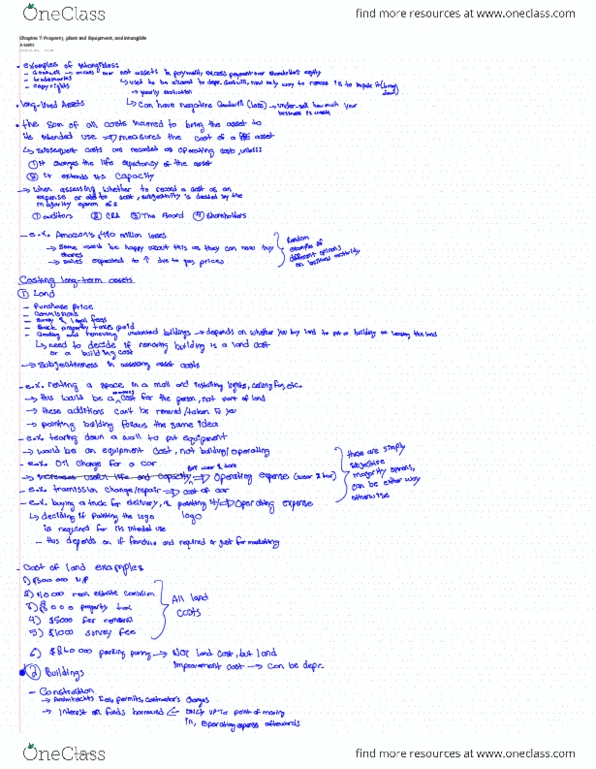 OneClass
find more resources at www.oneclass.com
Chapter 7: Property, plant and Equipment, and Intangible
Assets
- examples of intangibles:
- Goodwill → access over net assets in payment, excess payment over shareholders equity
- trademarks
- copyrights
→ used to be allowed to depr. Goodwill, now only way to remove is to impair it
→ yearly evaluation
• long-lived Assets
↳ Can have negative Goodwill (loss) → undersell how much your
business is worth
• the sum of all costs incurred to bring the asset to
its intended use ⇒ measures the cost of a asset
↳ Subsequent costs are recorded as operating costs, unless:
① It changes the life expectancy of the asset
② it extends its capacity
→ when assessing whether to record a cost as an
expense or add to cost, subjectivity is decided by the
majority opinion of:
① auditors ② CRA ③ The Board ④ Shareholders
- e.x. Amazon's million losses
→ Some would be happy about this as they can now buy
shares
→ sales expected to ↑ due to gas prices
Random
example of
different opinions
on business activity
Costing long-term assets
① Land
- Purchase price
- Commissions
- Survey & legal fees
- Back property taxes paid
- Grading and removing unwanted buildings → depends on whether you buy land to put a building or leaving the land
↳ need to decide if removing building is a land cost
or a building cost
→ Subjectiveness in assessing asset costs
- e.x. renting a space in a mall and installing lights, ceiling fans, etc.
→ this would be a cost for the person, not part of land
→ these additions can't be removed/taken w/ you
→ painting building follows the same idea
- e.x. tearing down a wall to put equipment
→ would be an equipment cost, not building/operating
- e.x. Oil change for a car
→ increases useful life and capacity ⇒ Operating expense (wear & tear)
- e.x. transmission change/repair ⇒ cost of car
- e.x. buying a truck for delivery, & painting it ⇒ Operating expense
logo
these are simply
subjective
majority opinions,
can be either way
otherwise
↳ deciding if painting the logo
is required for its intended use
- this depends on if franchise and required or just for marketing
- Cost of land examples
1) $300 000 M.P
2) 10 000 real estate commission
3) 8 000 property tax
4) $5000 for removal
5) $1000 survey fee
All land
costs
6) $260 000 parking paving → NOT land cost, but land
improvement cost → can be depr.
② Buildings
- Construction
→ Architects fees, permits, contractor's charges
→ Interest on funds borrowed ← only up to point of moving
in, operating expense afterwards
OneClass
find more resources at www.oneclass.com